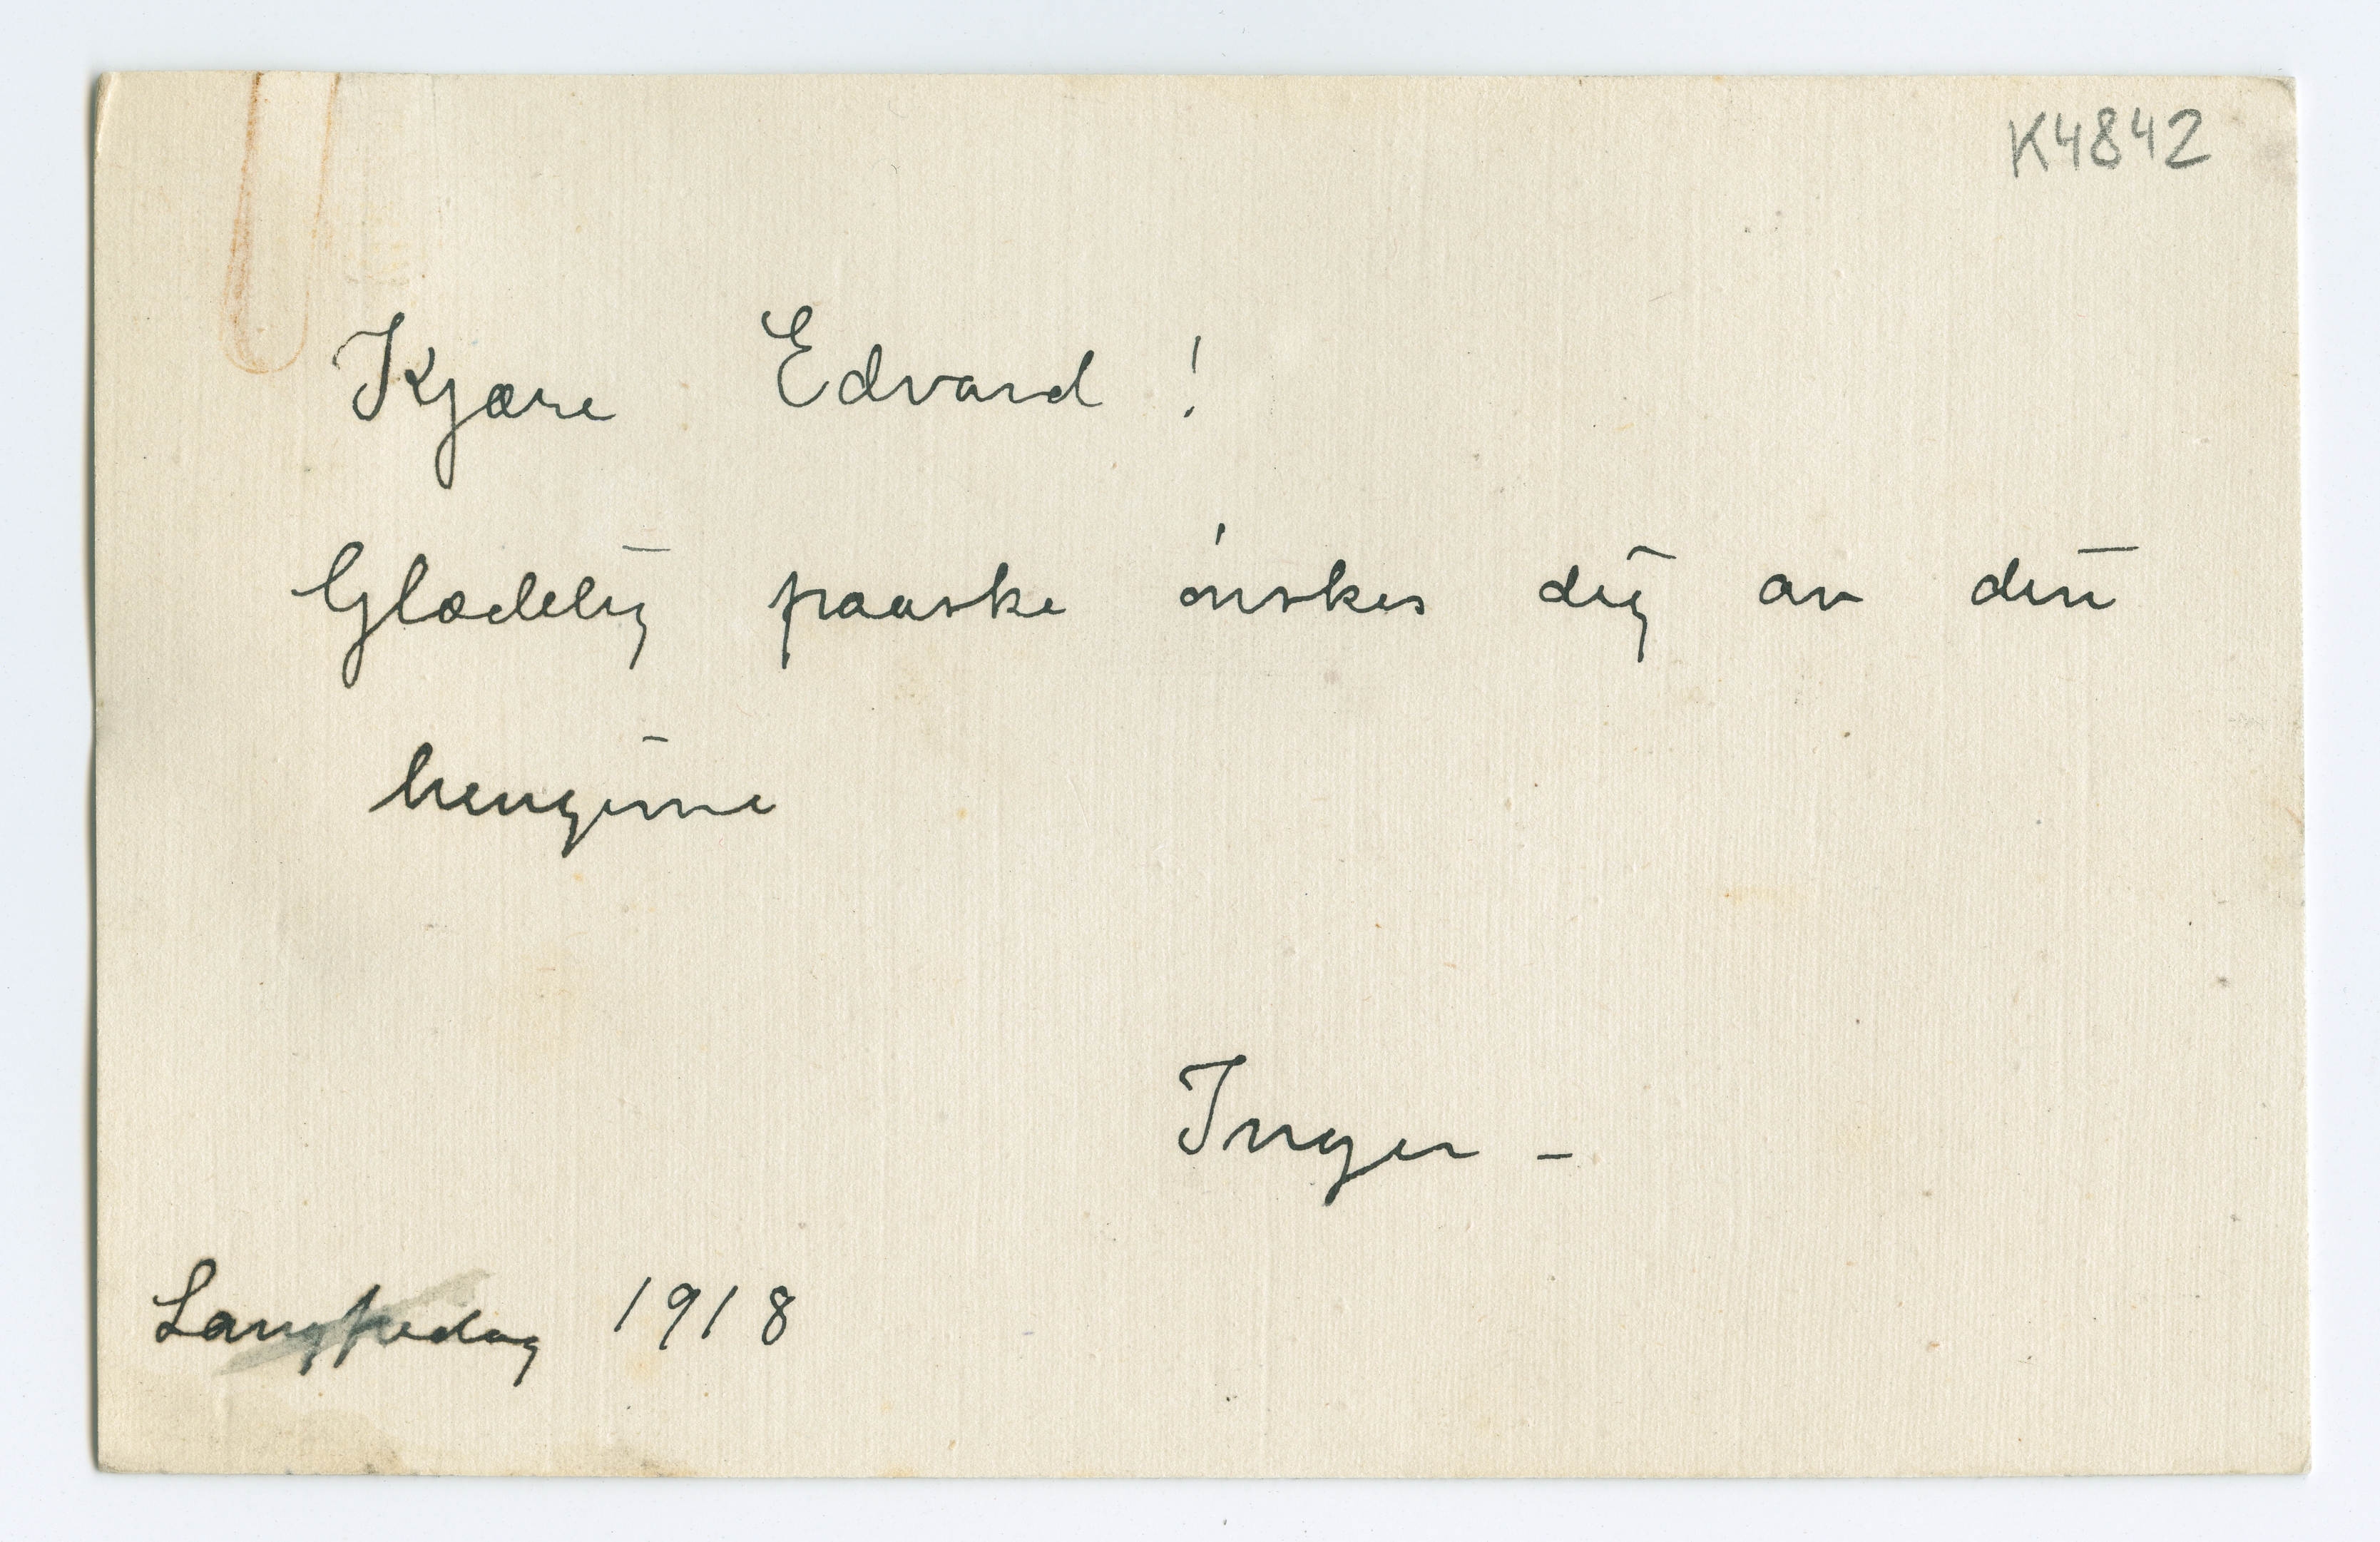 K4842
Kjære Edvard!
Glædelig paaske ønskes dig av din
hengivne
Inger –
Langfredag 1918